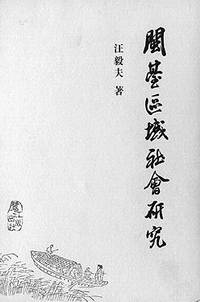 閩臺區域社會研究
汪毅夫 著